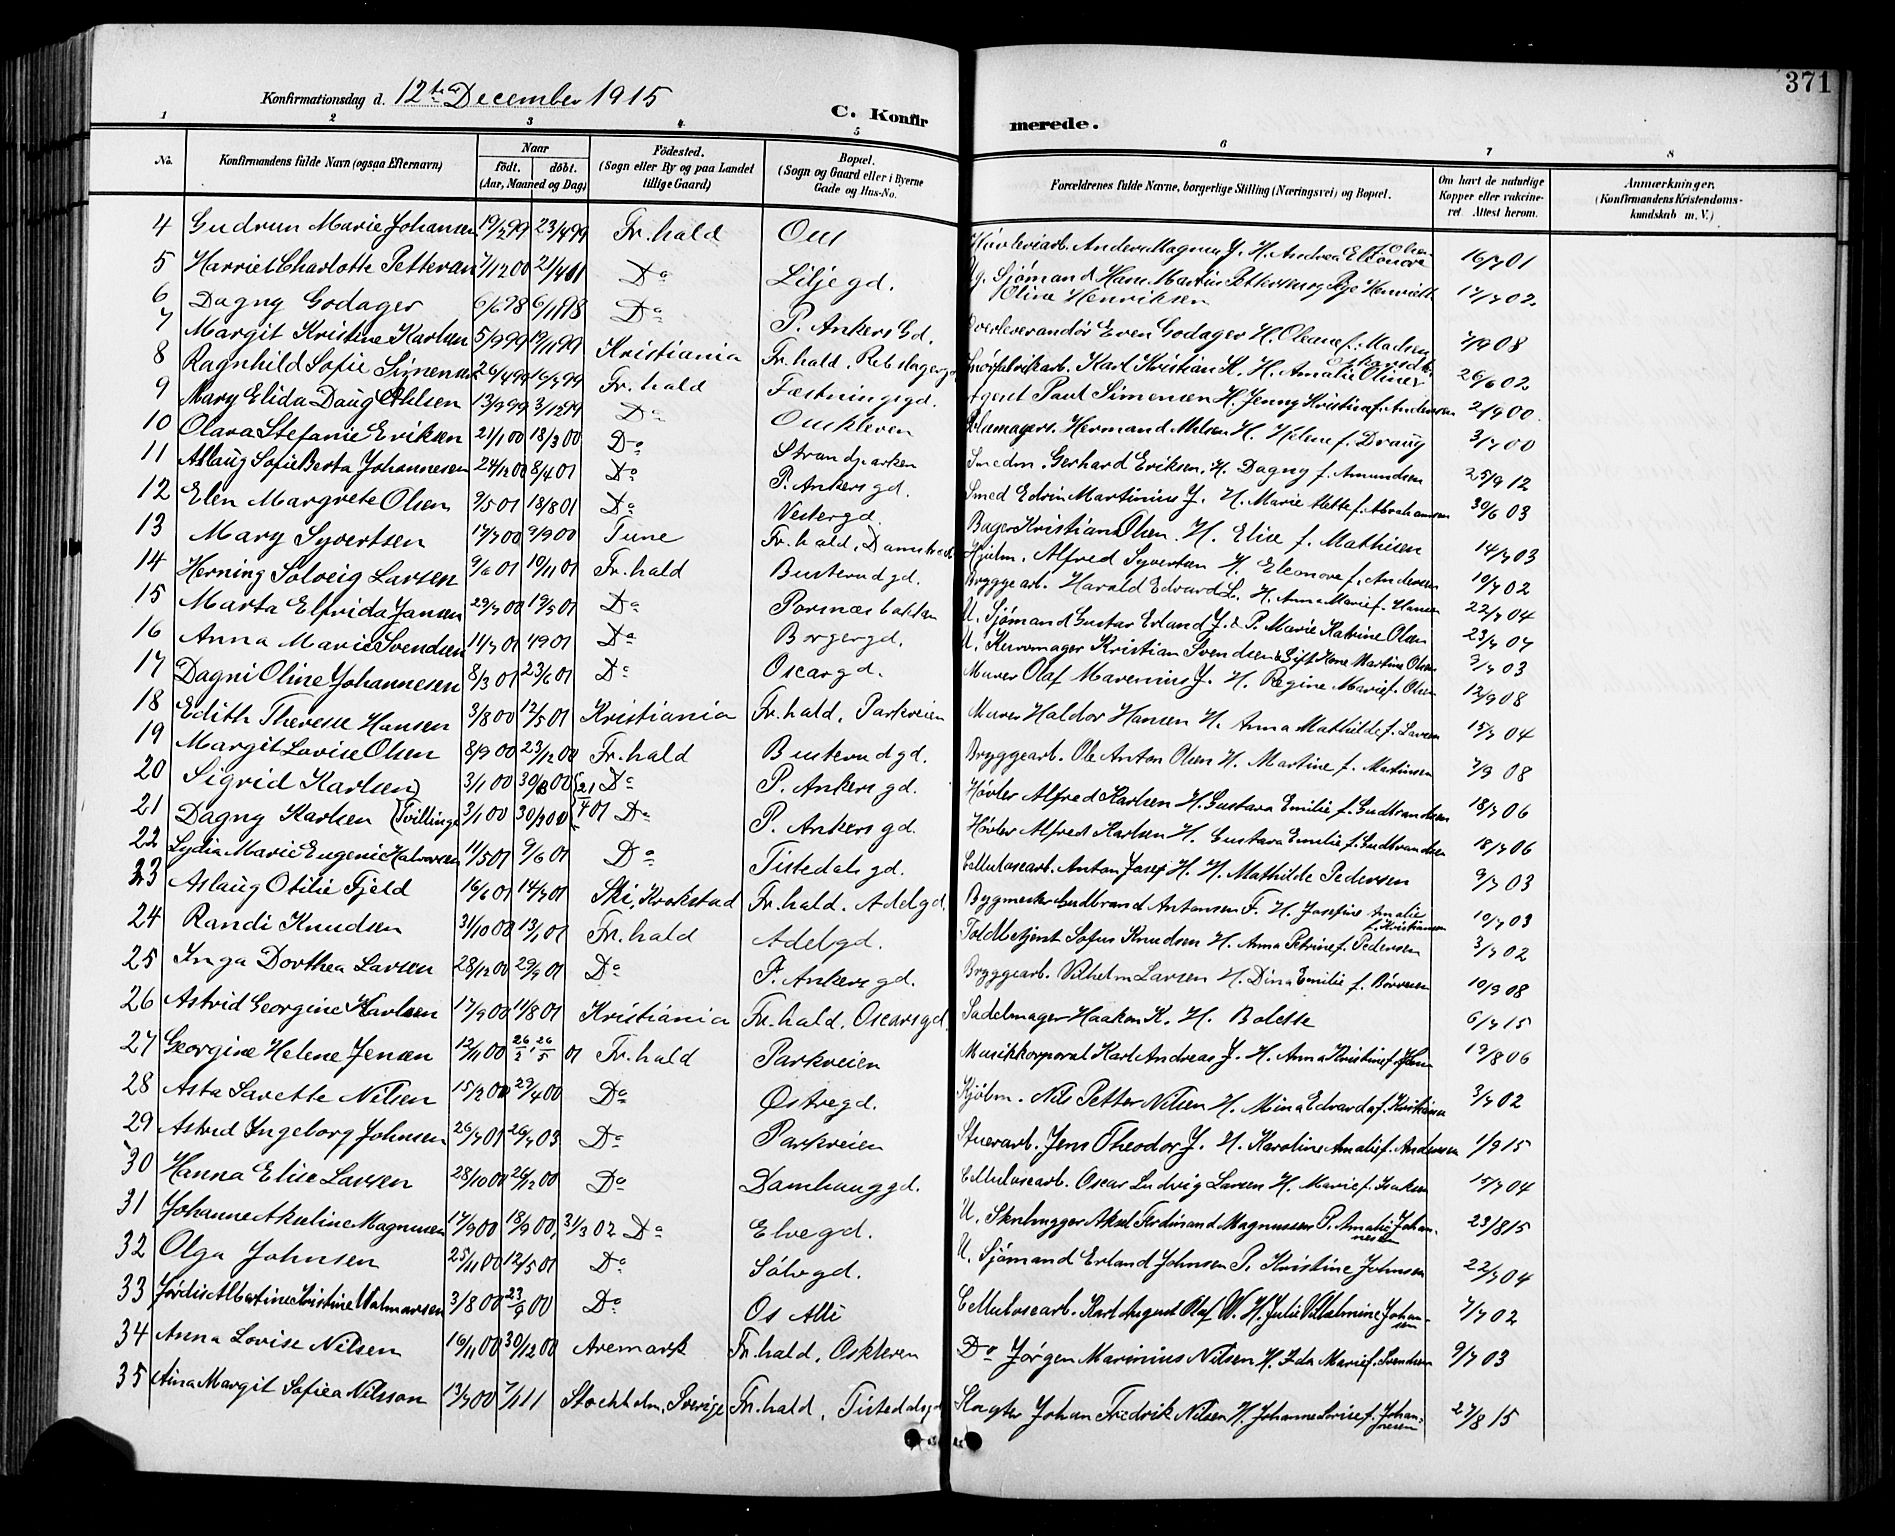 371
Konfirmationsdag d. 12te December 1915
C. Konfirmerede.
1 2 3 4 5 6 7 8
No. Konfirmandens fulde Navn (ogsaa Efternavn) Naar født. døbt. (Aar, Maaned og Dag) Fødested. (Sogn eller By og paa Landet tillige Gaard) Bopæl. (Sogn og Gaard eller i Byerne Gade og Hus-No. Forældrenes fulde Navne, borgerlige Stilling (Næringsvei) og Bopæl. Om havt de naturlige Kopper eller vaksineret. Attest herom. Anmærkninger. (Konfirmandens Kristendomskundskab m. V.)
4 Gudrun Marie Johansen 23/4 99 Fr.hald Anders Magnus J. H. Andrea Eleonore 16/7 01
5 Harriet Charlotte Petterson 7/12 00 21/4 01 Do Liljegd. Ug. Sjømand Hans Martin Petterson og Pge Henriette Oline Henriksen 17/7 02
6 Dagny Godager Do P. Ankers Gd. Even Godager H. Oleane f. Madsen 7/9 08
7 Margit Kristine Karlsen 5/9 99 19/11 99 Kristiania Fr.hald. Rebslagergd. Karl Kristian K. H. Amalie Oline 26/6 02
8 Ragnhild Sofie Simensen 26/4 99 16/7 99 Fr.hald Fæstningsgd. Agent Paul Simensen H. Jenny Kristine f. Andersen 00
9 Mary Elida Daug Ohlsen 13/9 99 3/12 99 Do Herman H. Helene f. Draug 3/7 00
10 Olava Stefanie Eriksen 21/1 00 18/3 00 Do Smedm. Gerhard Eriksen. H. Dagny f. Amundsen 25/9 12
11 Aslaug Sofie Berta Johannesen 24/12 00 8/4 01 Do P. Ankersgd. Smed Edvin Martinius J. H. Marie Mette f. Abrahamsen 30/6 03
12 Elen Margrete Olsen 9/5 01 18/8 01 Do Vestergd. Bager Kristian Olsen H. Elise f. Mathisen 14/7 03
13 Mary Syvertsen 17/7 00 9/9 00 Tune Fr.hald, Alfred Syvertsen H. Eleonore f. Andersen 19/7 02
14 Herning Solveig Larsen 9/6 01 10/11 01 Fr.hald Busterudgd. Bryggearb. Harald Edvard L. H. Anna Marie f. Hansen 22/7 04
15 Marta Elfrida Jansen 29/7 00 19/5 01 Do Porsnæsbakken U. Sjømand Gustav Erland J. & P. Marie Katrine Olsen 23/7 07
16 Anna Marie Svendsen 14/7 01 4/9 01 Do Borgergd. U. Kurvmager Kristian Svendsen & Gift Kone Martine Olsen 9/7 03
17 Dagni Oline Johannesen 8/3 01 23/6 01 Do Oscargd. Murer Olaf Marenius J. H. Regine Marie f. Olsen 12/9 08
18 Edith Therese Hansen 3/8 00 12/5 01 Kristiania Fr.hald, Parkveien Murer Haldor Hansen H. Anna Mathilde f. Larsen 15/7 04
19 Margit Lovise Olsen 8/9 00 23/12 00 Fr.hald Busterudgd. Bryggearb. Ole Anton Olsen H. Martine f. Martinsen 7/9 08
20 Sigrid Karlsen 3/1 00 30/8 00 21 Do P. Ankersgd. Høvler Alfred Karlsen H. Gustava Emilie f. Gudbrandsen 18/7 06
21 Dagny Karlsen (Tvillinge) 3/1 00 4 01 Do P. Ankersgd. Høvler Alfred Karlsen H. Gustava Emilie f. Gudbrandsen 18/7 06
22 Lydia Marie Eugenie Halvorsen 11/5 01 9/6 01 Do Tistedalsgd. Cellulosearb. Anton Josef H. H. Mathilde Pedersen 9/7 03
23 Aslaug Otilie Fjeld 16/6 01 14/7 01 Ski, Kroksstad Fr.hald. Adelgd. Bygmester Gudbrand Antonsen F. H. Josefine Amalie f. Kristiansen 10/7 03
24 Randi Knudsen 31/10 00 13/1 01 Fr.hald Adelgd. Toldbetjent Sofus Knudsen H. Anna Petrine f. Pedersen 3/7 02
25 Inga Dorthea Larsen 28/12 00 Do P. Ankersgd. Bryggearb. Vilhelm Larsen H. Dina Emilie f. Børresen 10/9 08
26 Astrid Georgine Karlsen 17/9 00 11/8 01 Kristiania Fr.hald, Oscarsgd. Sadelmager Haakon K. H. Bolette 6/7 15
27 Georgine Helene Jensen 12/11 00 26/2, 26/5 01 Fr.hald Parkveien Musikkorporal Karl Andreas J. H. Anna Kristine f. 19/8 06
28 Asta Savette Nilsen 15/2 00 29/4 00 Do Østregd. Kjølm. Nils Petter Nilsen H. Mina Edvarda f. Kristiansen 3/7 02
29 Astrid Ingeborg Johnsen 26/7 01 26/7 03 Do Parkveien Stuerarb. Jens Theodor J. H. Karoline Amalie f. Andersen 1/9 15
30 Hanna Elise Larsen 28/10 00 26/12 00 Do Damhauggd. Cellulosearb. Oscar Ludvig Larsen H. Marie f. Isaksen 15/7 04
31 Johanne Akseline Magnussen 17/9 00 18/9 00, 31/3 02 Do Elvegd. U. Skibsbygger Aksel Ferdinand Magnussen P. Amalie Johannesen 23/8 15
32 Olga Johnsen 25/11 00 12/5 01 Do Sølvgd. U. Sjømand Erland Johnsen P. Kristine Johnsen 22/7 04
33 Jørdis Albertine Kristine Walmarsen 3/8 00 23/9 00 Do Os Alle Cellulosearb. Karl August Olaf W. H. Julie Vilhelmine Johansen 7/7 02
34 Anna Lovise Nilsen 16/11 00 30/12 00 Aremark Fr.hald, Oskleven Do Jørgen Marinius Nilsen H. Ida Marie f. Svendsen 9/7 03
35 Aina Margit Sofiea Nilsson 13/7 00 7/1 11 Stockholm, Sverige Fr.hald, Tistedalsgd. Slagter Johan Fredrik Nilsen H. Johanne Lovise f. Johannesen 27/8 15